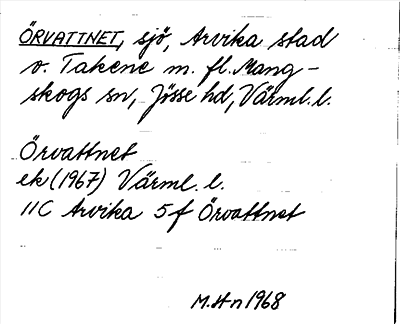 ÖRVATTNET, sjö, Arvika stad
o. Takene m. fl. Mang-
skogs sn, Jösse hd, Värml. l.
Örvattnet
ek (1967) Värml. l.
11C Arvika 5f Örvattnet
M. St-n 1968